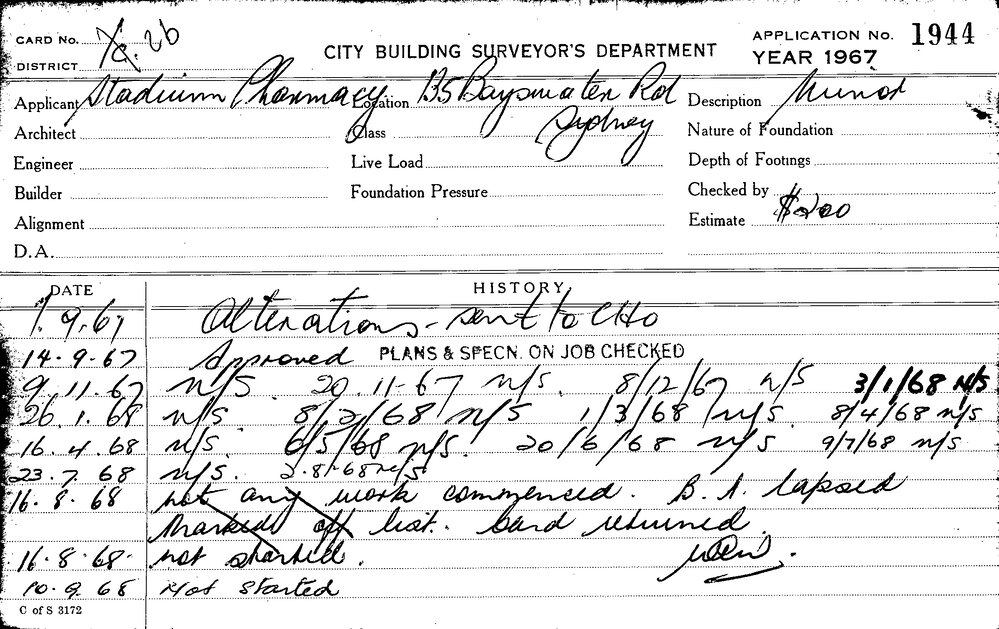 CARD No. 1/9. 26
CITY BUILDING SURVEYOR'S DEPARTMENT
APPLICATION No. 1944
DISTRICT
YEAR 1967
Applicant Stadium Pharmacy Location 135 Bayswater Rd Description Minor
Architect Class Sydney Nature of Foundation
Engineer Live Load Depth of Footings
Builder Foundation Pressure Checked by
Alignment Estimate $200
D.A.
DATE HISTORY
1. 9. 67 Alterations - sent to CHO
14. 9. 67 Approved PLANS & SPECN. ON JOB CHECKED
9. 11. 67 n/s. 20. 11. 67 n/s. 8/12/67 n/s 3/1/68 n/s
26. 1. 68 n/s. 8/2/68 n/s 1/3/68 n/s. 8/4/68 n/s
16. 4. 68 n/s. 6/5/68 n/s. 20/6/68 n/s 9/7/68 n/s
23. 7. 68 n/s. 2.8.68 n/s
16. 8. 68 not any work commenced. B.A. lapsed
Marked off list. Card returned
16. 8. 68. not started.
10. 9. 68 Not started
C of S 3172